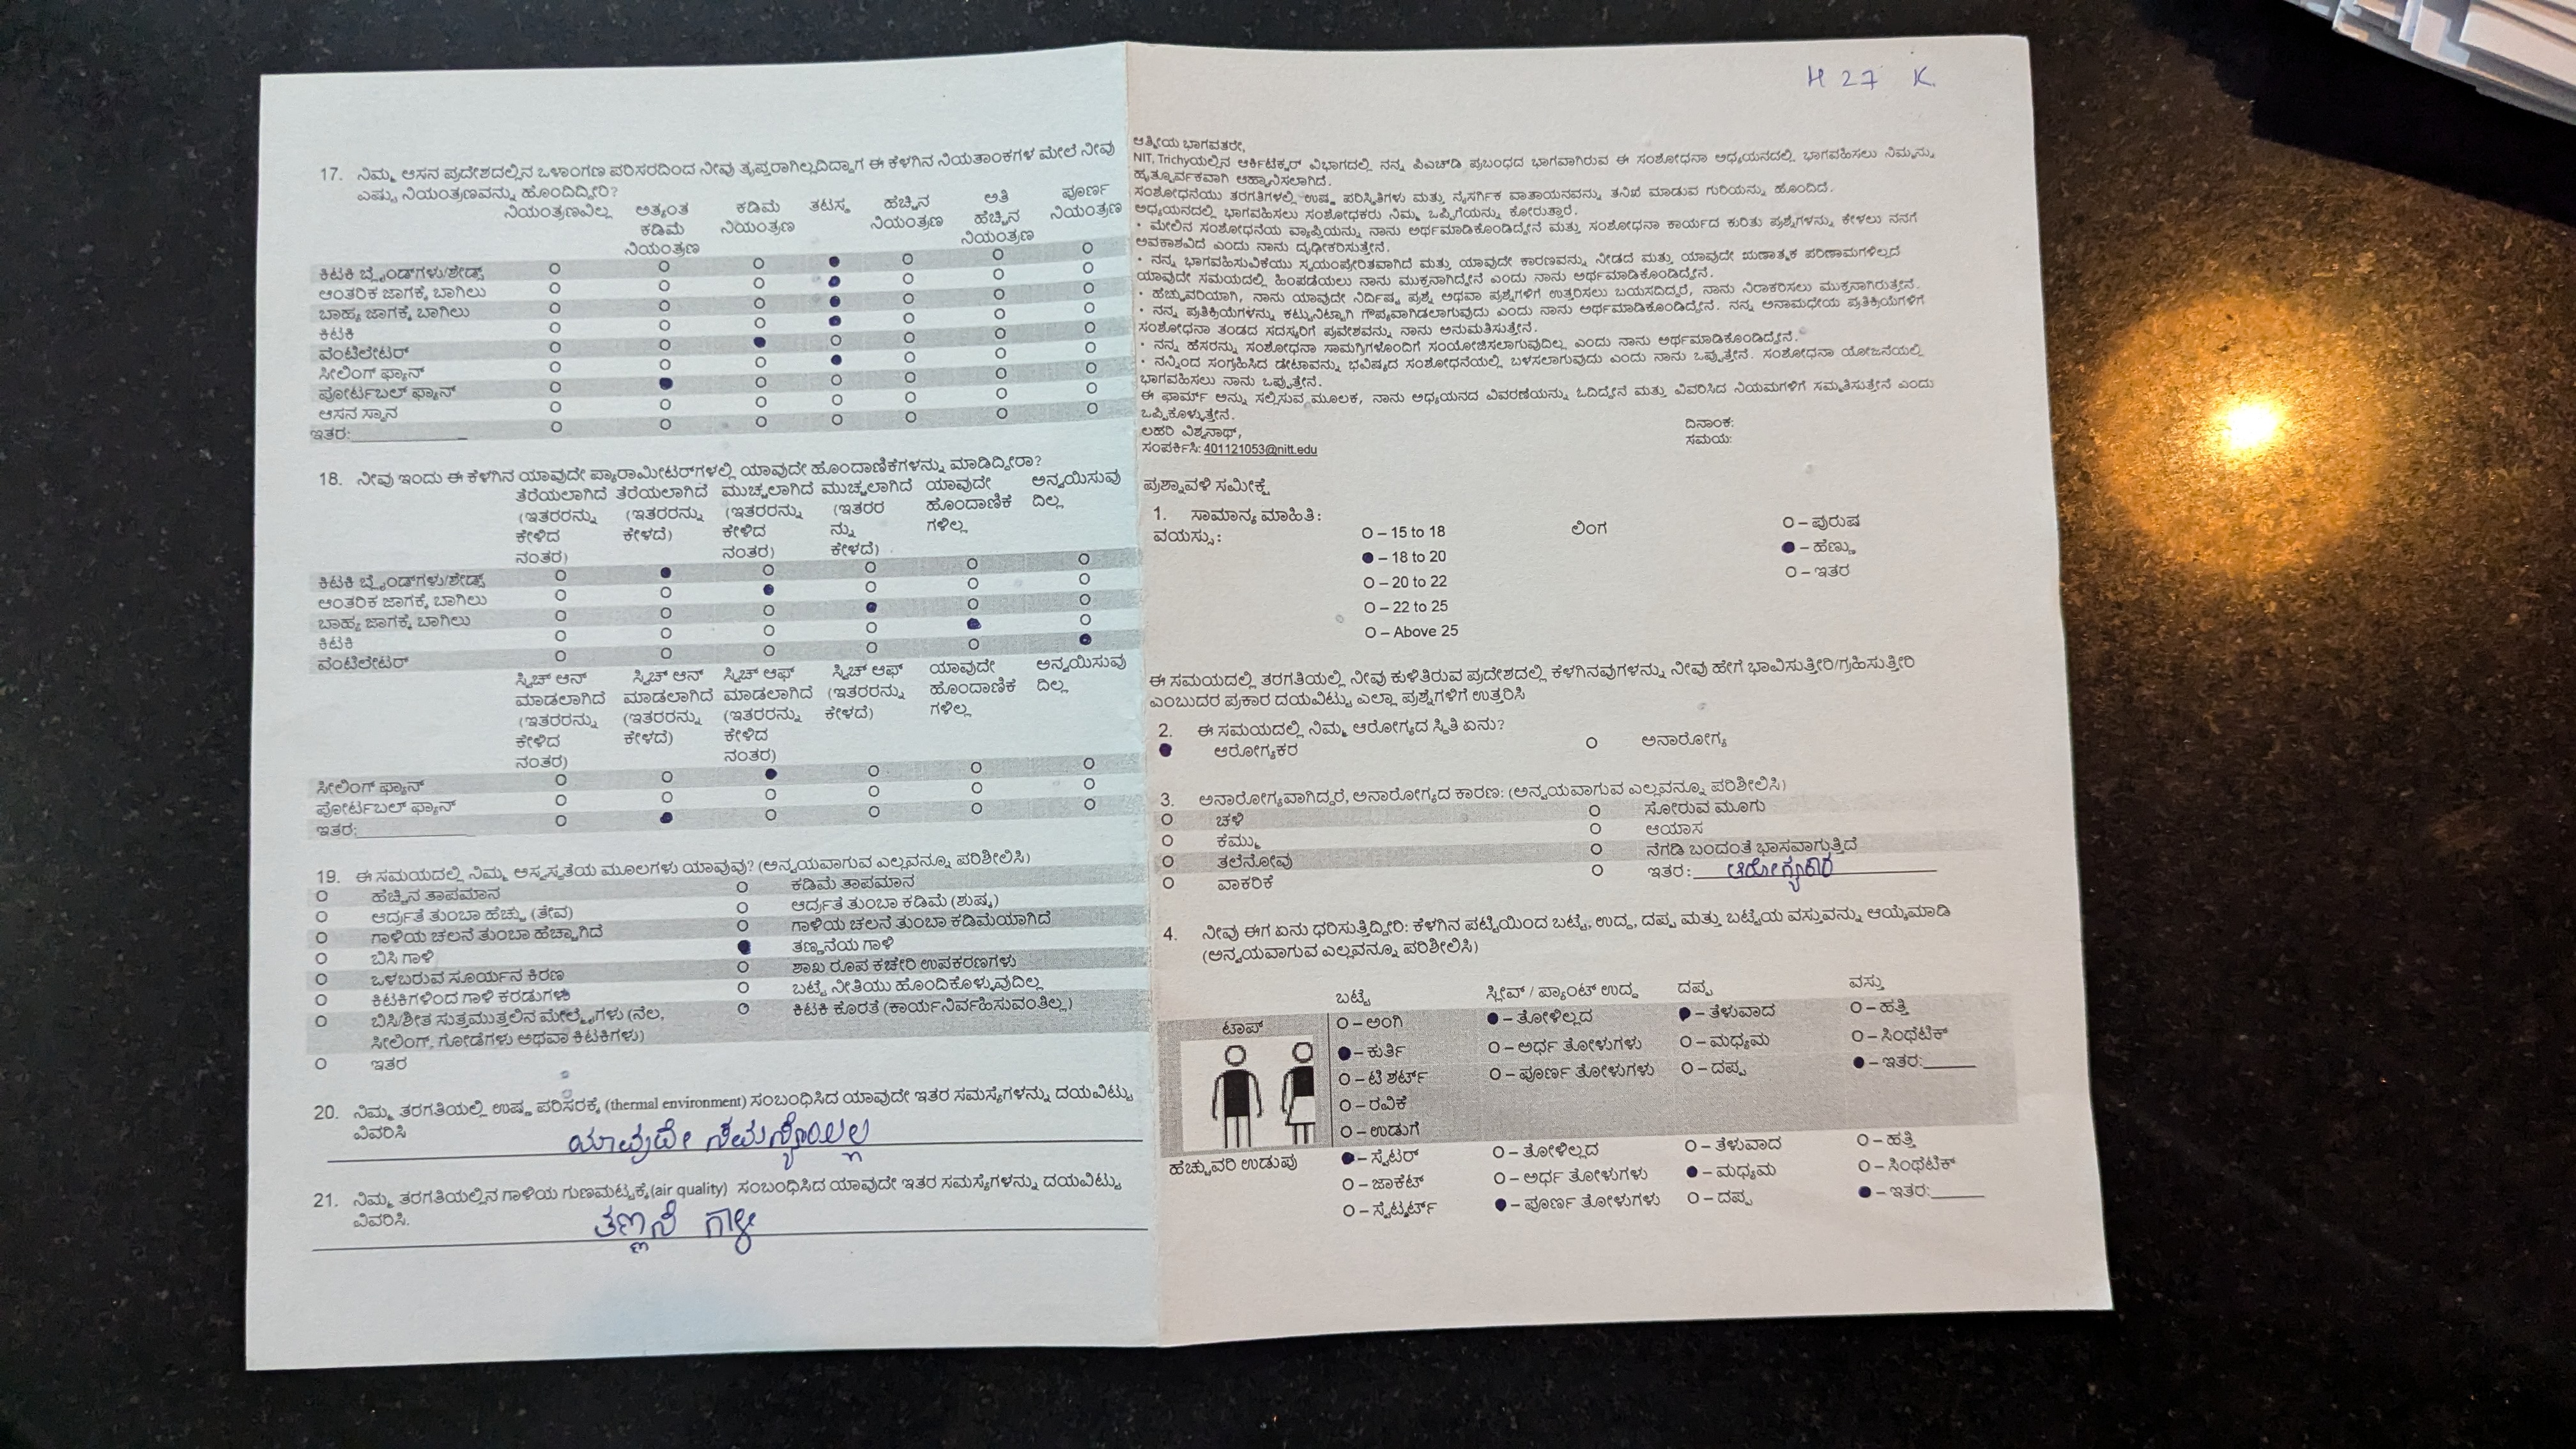 17. ನಿಮ್ಮ ಆಸನ ಪ್ರದೇಶದಲ್ಲಿನ ಒಳಾಂಗಣ ಪರಿಸರದಿಂದ ನೀವು ತೃಪ್ತರಾಗಿಲ್ಲದಿದ್ದಾಗ ಈ ಕೆಳಗಿನ ನಿಯತಾಂಕಗಳ ಮೇಲೆ ನೀವು
ಎಷ್ಟು ನಿಯಂತ್ರಣವನ್ನು ಹೊಂದಿದ್ದೀರಿ?
ನಿಯಂತ್ರಣವಿಲ್ಲ ಅತ್ಯಂತ ಕಡಿಮೆ ನಿಯಂತ್ರಣ ಕಡಿಮೆ ನಿಯಂತ್ರಣ ತಟಸ್ಥ ಹೆಚ್ಚಿನ ನಿಯಂತ್ರಣ ಅತಿ ಹೆಚ್ಚಿನ ನಿಯಂತ್ರಣ ಪೂರ್ಣ ನಿಯಂತ್ರಣ
ಕಿಟಕಿ ಬ್ಲೈಂಡ್‌ಗಳು/ಶೇಡ್ಸ್
ಆಂತರಿಕ ಜಾಗಕ್ಕೆ ಬಾಗಿಲು
ಬಾಹ್ಯ ಜಾಗಕ್ಕೆ ಬಾಗಿಲು
ಕಿಟಕಿ
ವೆಂಟಿಲೇಟರ್
ಸೀಲಿಂಗ್ ಫ್ಯಾನ್
ಪೋರ್ಟಬಲ್ ಫ್ಯಾನ್
ಆಸನ ಸ್ಥಾನ
ಇತರ:
18. ನೀವು ಇಂದು ಈ ಕೆಳಗಿನ ಯಾವುದೇ ಪ್ಯಾರಾಮೀಟರ್‌ಗಳಲ್ಲಿ ಯಾವುದೇ ಹೊಂದಾಣಿಕೆಗಳನ್ನು ಮಾಡಿದ್ದೀರಾ?
ತೆರೆಯಲಾಗಿದೆ (ಇತರರನ್ನು ಕೇಳಿದ ನಂತರ) ತೆರೆಯಲಾಗಿದೆ (ಇತರರನ್ನು ಕೇಳದೆ) ಮುಚ್ಚಲಾಗಿದೆ (ಇತರರನ್ನು ಕೇಳಿದ ನಂತರ) ಮುಚ್ಚಲಾಗಿದೆ (ಇತರರ ನ್ನು ಕೇಳದೆ) ಯಾವುದೇ ಹೊಂದಾಣಿಕೆ ಗಳಿಲ್ಲ ಅನ್ವಯಿಸುವು ದಿಲ್ಲ
ಕಿಟಕಿ ಬ್ಲೈಂಡ್‌ಗಳು/ಶೇಡ್ಸ್
ಆಂತರಿಕ ಜಾಗಕ್ಕೆ ಬಾಗಿಲು
ಬಾಹ್ಯ ಜಾಗಕ್ಕೆ ಬಾಗಿಲು
ಕಿಟಕಿ
ವೆಂಟಿಲೇಟರ್
ಸ್ವಿಚ್ ಆನ್ ಮಾಡಲಾಗಿದೆ (ಇತರರನ್ನು ಕೇಳಿದ ನಂತರ) ಸ್ವಿಚ್ ಆನ್ ಮಾಡಲಾಗಿದೆ (ಇತರರನ್ನು ಕೇಳದೆ) ಸ್ವಿಚ್ ಆಫ್ ಮಾಡಲಾಗಿದೆ (ಇತರರನ್ನು ಕೇಳಿದ ನಂತರ) ಸ್ವಿಚ್ ಆಫ್ (ಇತರರನ್ನು ಕೇಳದೆ) ಯಾವುದೇ ಹೊಂದಾಣಿಕೆ ಗಳಿಲ್ಲ ಅನ್ವಯಿಸುವು ದಿಲ್ಲ
ಸೀಲಿಂಗ್ ಫ್ಯಾನ್
ಪೋರ್ಟಬಲ್ ಫ್ಯಾನ್
ಇತರ:
19. ಈ ಸಮಯದಲ್ಲಿ ನಿಮ್ಮ ಅಸ್ವಸ್ಥತೆಯ ಮೂಲಗಳು ಯಾವುವು? (ಅನ್ವಯವಾಗುವ ಎಲ್ಲವನ್ನೂ ಪರಿಶೀಲಿಸಿ)
ಹೆಚ್ಚಿನ ತಾಪಮಾನ ಕಡಿಮೆ ತಾಪಮಾನ
ಆರ್ದ್ರತೆ ತುಂಬಾ ಹೆಚ್ಚು (ತೇವ) ಆರ್ದ್ರತೆ ತುಂಬಾ ಕಡಿಮೆ (ಶುಷ್ಕ)
ಗಾಳಿಯ ಚಲನೆ ತುಂಬಾ ಹೆಚ್ಚಾಗಿದೆ ಗಾಳಿಯ ಚಲನೆ ತುಂಬಾ ಕಡಿಮೆಯಾಗಿದೆ
ಬಿಸಿ ಗಾಳಿ ತಣ್ಣನೆಯ ಗಾಳಿ
ಒಳಬರುವ ಸೂರ್ಯನ ಕಿರಣ ಶಾಖ ರೂಪ ಕಚೇರಿ ಉಪಕರಣಗಳು
ಕಿಟಕಿಗಳಿಂದ ಗಾಳಿ ಕರಡುಗಳು ಬಟ್ಟೆ ನೀತಿಯು ಹೊಂದಿಕೊಳ್ಳುವುದಿಲ್ಲ
ಬಿಸಿ/ಶೀತ ಸುತ್ತಮುತ್ತಲಿನ ಮೇಲ್ಮೈಗಳು (ನೆಲ, ಕಿಟಕಿ ಕೊರತೆ (ಕಾರ್ಯನಿರ್ವಹಿಸುವಂತಿಲ್ಲ)
ಸೀಲಿಂಗ್, ಗೋಡೆಗಳು ಅಥವಾ ಕಿಟಕಿಗಳು)
ಇತರ
20. ನಿಮ್ಮ ತರಗತಿಯಲ್ಲಿ ಉಷ್ಣ ಪರಿಸರಕ್ಕೆ (thermal environment) ಸಂಬಂಧಿಸಿದ ಯಾವುದೇ ಇತರ ಸಮಸ್ಯೆಗಳನ್ನು ದಯವಿಟ್ಟು
ವಿವರಿಸಿ
ಯಾವುದೇ ಸಮಸ್ಯೆಯಿಲ್ಲ
21. ನಿಮ್ಮ ತರಗತಿಯಲ್ಲಿನ ಗಾಳಿಯ ಗುಣಮಟ್ಟಕ್ಕೆ(air quality) ಸಂಬಂಧಿಸಿದ ಯಾವುದೇ ಇತರ ಸಮಸ್ಯೆಗಳನ್ನು ದಯವಿಟ್ಟು
ವಿವರಿಸಿ.
ತಣ್ಣನೆ ಗಾಳಿ
H 27 K.
ಆತ್ಮೀಯ ಭಾಗವತರೇ,
NIT, Trichyಯಲ್ಲಿನ ಆರ್ಕಿಟೆಕ್ಚರ್ ವಿಭಾಗದಲ್ಲಿ ನನ್ನ ಪಿಎಚ್‌ಡಿ ಪ್ರಬಂಧದ ಭಾಗವಾಗಿರುವ ಈ ಸಂಶೋಧನಾ ಅಧ್ಯಯನದಲ್ಲಿ ಭಾಗವಹಿಸಲು ನಿಮ್ಮನ್ನು
ಹೃತ್ಪೂರ್ವಕವಾಗಿ ಆಹ್ವಾನಿಸಲಾಗಿದೆ.
ಸಂಶೋಧನೆಯು ತರಗತಿಗಳಲ್ಲಿ ಉಷ್ಣ ಪರಿಸ್ಥಿತಿಗಳು ಮತ್ತು ನೈಸರ್ಗಿಕ ವಾತಾಯನವನ್ನು ತನಿಖೆ ಮಾಡುವ ಗುರಿಯನ್ನು ಹೊಂದಿದೆ.
ಅಧ್ಯಯನದಲ್ಲಿ ಭಾಗವಹಿಸಲು ಸಂಶೋಧಕರು ನಿಮ್ಮ ಒಪ್ಪಿಗೆಯನ್ನು ಕೋರುತ್ತಾರೆ.
• ಮೇಲಿನ ಸಂಶೋಧನೆಯ ವ್ಯಾಪ್ತಿಯನ್ನು ನಾನು ಅರ್ಥಮಾಡಿಕೊಂಡಿದ್ದೇನೆ ಮತ್ತು ಸಂಶೋಧನಾ ಕಾರ್ಯದ ಕುರಿತು ಪ್ರಶ್ನೆಗಳನ್ನು ಕೇಳಲು ನನಗೆ
ಅವಕಾಶವಿದೆ ಎಂದು ನಾನು ದೃಢೀಕರಿಸುತ್ತೇನೆ.
• ನನ್ನ ಭಾಗವಹಿಸುವಿಕೆಯು ಸ್ವಯಂಪ್ರೇರಿತವಾಗಿದೆ ಮತ್ತು ಯಾವುದೇ ಕಾರಣವನ್ನು ನೀಡದೆ ಮತ್ತು ಯಾವುದೇ ಋಣಾತ್ಮಕ ಪರಿಣಾಮಗಳಿಲ್ಲದೆ
ಯಾವುದೇ ಸಮಯದಲ್ಲಿ ಹಿಂಪಡೆಯಲು ನಾನು ಮುಕ್ತನಾಗಿದ್ದೇನೆ ಎಂದು ನಾನು ಅರ್ಥಮಾಡಿಕೊಂಡಿದ್ದೇನೆ.
• ಹೆಚ್ಚುವರಿಯಾಗಿ, ನಾನು ಯಾವುದೇ ನಿರ್ದಿಷ್ಟ ಪ್ರಶ್ನೆ ಅಥವಾ ಪ್ರಶ್ನೆಗಳಿಗೆ ಉತ್ತರಿಸಲು ಬಯಸದಿದ್ದರೆ, ನಾನು ನಿರಾಕರಿಸಲು ಮುಕ್ತನಾಗಿರುತ್ತೇನೆ.
• ನನ್ನ ಪ್ರತಿಕ್ರಿಯೆಗಳನ್ನು ಕಟ್ಟುನಿಟ್ಟಾಗಿ ಗೌಪ್ಯವಾಗಿಡಲಾಗುವುದು ಎಂದು ನಾನು ಅರ್ಥಮಾಡಿಕೊಂಡಿದ್ದೇನೆ. ನನ್ನ ಅನಾಮಧೇಯ ಪ್ರತಿಕ್ರಿಯೆಗಳಿಗೆ
ಸಂಶೋಧನಾ ತಂಡದ ಸದಸ್ಯರಿಗೆ ಪ್ರವೇಶವನ್ನು ನಾನು ಅನುಮತಿಸುತ್ತೇನೆ.
• ನನ್ನ ಹೆಸರನ್ನು ಸಂಶೋಧನಾ ಸಾಮಗ್ರಿಗಳೊಂದಿಗೆ ಸಂಯೋಜಿಸಲಾಗುವುದಿಲ್ಲ ಎಂದು ನಾನು ಅರ್ಥಮಾಡಿಕೊಂಡಿದ್ದೇನೆ.
• ನನ್ನಿಂದ ಸಂಗ್ರಹಿಸಿದ ಡೇಟಾವನ್ನು ಭವಿಷ್ಯದ ಸಂಶೋಧನೆಯಲ್ಲಿ ಬಳಸಲಾಗುವುದು ಎಂದು ನಾನು ಒಪ್ಪುತ್ತೇನೆ. ಸಂಶೋಧನಾ ಯೋಜನೆಯಲ್ಲಿ
ಭಾಗವಹಿಸಲು ನಾನು ಒಪ್ಪುತ್ತೇನೆ.
ಈ ಫಾರ್ಮ್ ಅನ್ನು ಸಲ್ಲಿಸುವ ಮೂಲಕ, ನಾನು ಅಧ್ಯಯನದ ವಿವರಣೆಯನ್ನು ಓದಿದ್ದೇನೆ ಮತ್ತು ವಿವರಿಸಿದ ನಿಯಮಗಳಿಗೆ ಸಮ್ಮತಿಸುತ್ತೇನೆ ಎಂದು
ಒಪ್ಪಿಕೊಳ್ಳುತ್ತೇನೆ.
ಲಹರಿ ವಿಶ್ವನಾಥ್, ದಿನಾಂಕ:
ಸಂಪರ್ಕಿಸಿ: 401121053@nitt.edu ಸಮಯ:
ಪ್ರಶ್ನಾವಳಿ ಸಮೀಕ್ಷೆ
1. ಸಾಮಾನ್ಯ ಮಾಹಿತಿ:
ವಯಸ್ಸು: O – 15 to 18 ಲಿಂಗ O – ಪುರುಷ
● – 18 to 20 ● – ಹೆಣ್ಣು
O – 20 to 22 O – ಇತರ
O – 22 to 25
O – Above 25
ಈ ಸಮಯದಲ್ಲಿ ತರಗತಿಯಲ್ಲಿ ನೀವು ಕುಳಿತಿರುವ ಪ್ರದೇಶದಲ್ಲಿ ಕೆಳಗಿನವುಗಳನ್ನು ನೀವು ಹೇಗೆ ಭಾವಿಸುತ್ತೀರಿ/ಗ್ರಹಿಸುತ್ತೀರಿ
ಎಂಬುದರ ಪ್ರಕಾರ ದಯವಿಟ್ಟು ಎಲ್ಲಾ ಪ್ರಶ್ನೆಗಳಿಗೆ ಉತ್ತರಿಸಿ
2. ಈ ಸಮಯದಲ್ಲಿ ನಿಮ್ಮ ಆರೋಗ್ಯದ ಸ್ಥಿತಿ ಏನು?
● ಆರೋಗ್ಯಕರ O ಅನಾರೋಗ್ಯ
3. ಅನಾರೋಗ್ಯವಾಗಿದ್ದರೆ, ಅನಾರೋಗ್ಯದ ಕಾರಣ: (ಅನ್ವಯವಾಗುವ ಎಲ್ಲವನ್ನೂ ಪರಿಶೀಲಿಸಿ)
O ಚಳಿ O ಸೋರುವ ಮೂಗು
O ಕೆಮ್ಮು O ಆಯಾಸ
O ತಲೆನೋವು O ನೆಗಡಿ ಬಂದಂತೆ ಭಾಸವಾಗುತ್ತಿದೆ
O ವಾಕರಿಕೆ O ಇತರ: ಆರೋಗ್ಯಕರ
4. ನೀವು ಈಗ ಏನು ಧರಿಸುತ್ತಿದ್ದೀರಿ: ಕೆಳಗಿನ ಪಟ್ಟಿಯಿಂದ ಬಟ್ಟೆ, ಉದ್ದ, ದಪ್ಪ ಮತ್ತು ಬಟ್ಟೆಯ ವಸ್ತುವನ್ನು ಆಯ್ಕೆಮಾಡಿ
(ಅನ್ವಯವಾಗುವ ಎಲ್ಲವನ್ನೂ ಪರಿಶೀಲಿಸಿ)
ಬಟ್ಟೆ ಸ್ಲೀವ್ / ಪ್ಯಾಂಟ್ ಉದ್ದ ದಪ್ಪ ವಸ್ತು
ಟಾಪ್ O – ಅಂಗಿ ● – ತೋಳಿಲ್ಲದ ● – ತೆಳುವಾದ O – ಹತ್ತಿ
● – ಕುರ್ತಿ O – ಅರ್ಧ ತೋಳುಗಳು O – ಮಧ್ಯಮ O – ಸಿಂಥೆಟಿಕ್
O – ಟಿ ಶರ್ಟ್ O – ಪೂರ್ಣ ತೋಳುಗಳು O – ದಪ್ಪ ● – ಇತರ:
O – ರವಿಕೆ
O – ಉಡುಗೆ
ಹೆಚ್ಚುವರಿ ಉಡುಪು ● – ಸ್ವೆಟರ್ O – ತೋಳಿಲ್ಲದ O – ತೆಳುವಾದ O – ಹತ್ತಿ
O – ಜಾಕೆಟ್ O – ಅರ್ಧ ತೋಳುಗಳು ● – ಮಧ್ಯಮ O – ಸಿಂಥೆಟಿಕ್
O – ಸ್ವೆಟ್ಶರ್ಟ್ ● – ಪೂರ್ಣ ತೋಳುಗಳು O – ದಪ್ಪ ● – ಇತರ: